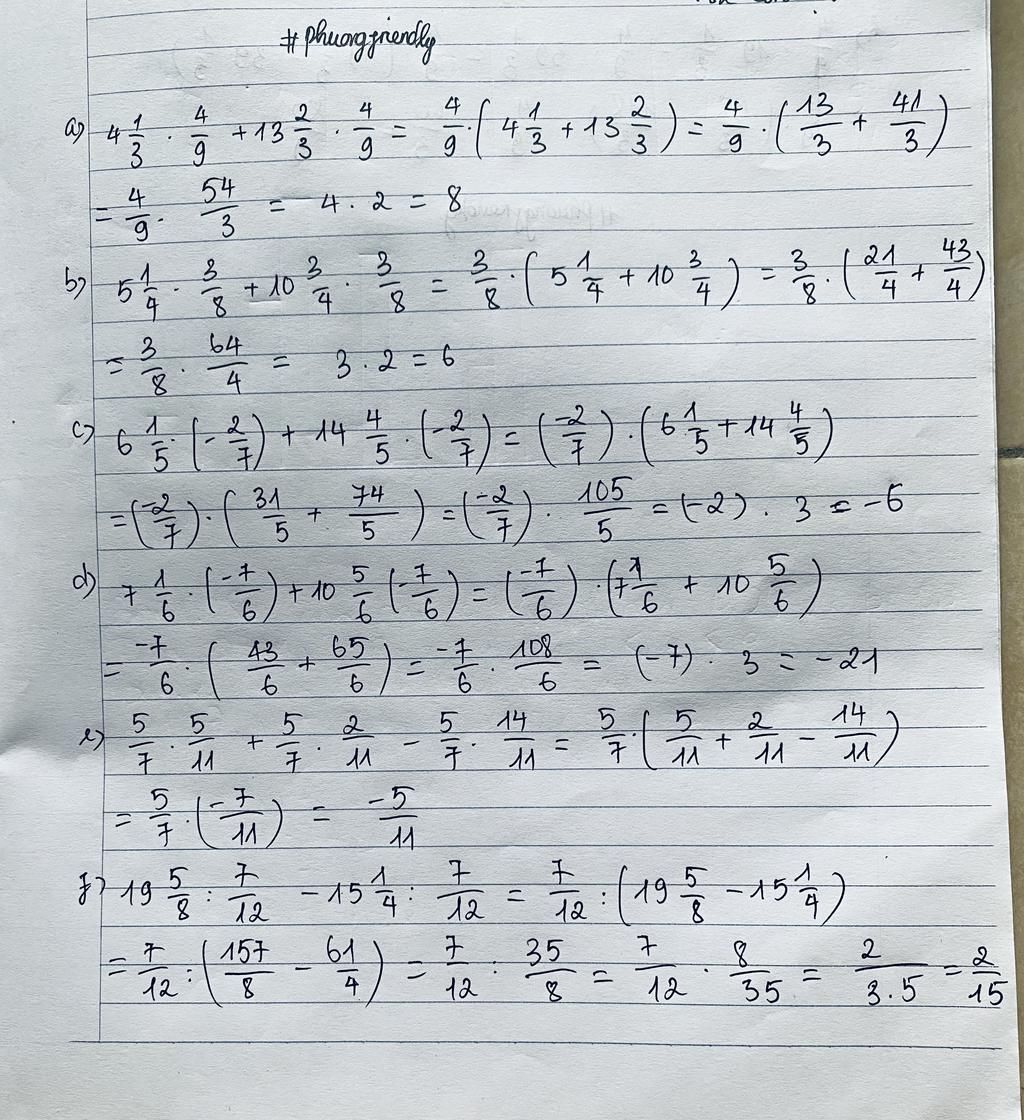 #phuongfriendly
a) 4 1/3 . 4/9 + 13 2/3 . 4/9 = 4/9 . ( 4 1/3 + 13 2/3 ) = 4/9 . ( 13/3 + 41/3 )
= 4/9 . 54/3 = 4 . 2 = 8
b) 5 1/4 . 3/8 + 10 3/4 . 3/8 = 3/8 . ( 5 1/4 + 10 3/4 ) = 3/8 . ( 21/4 + 43/4 )
= 3/8 . 64/4 = 3 . 2 = 6
c) 6 1/5 . (-2/7) + 14 4/5 . (-2/7) = (-2/7) . ( 6 1/5 + 14 4/5 )
= (-2/7) . ( 31/5 + 74/5 ) = (-2/7) . 105/5 = (-2) . 3 = -6
d) 7 1/6 . (-7/6) + 10 5/6 (-7/6) = (-7/6) . ( 7 1/6 + 10 5/6 )
= -7/6 . ( 43/6 + 65/6 ) = -7/6 . 108/6 = (-7) . 3 = -21
e) 5/7 . 5/11 + 5/7 . 2/11 - 5/7 . 14/11 = 5/7 . ( 5/11 + 2/11 - 14/11 )
= 5/7 . (-7/11) = -5/11
f) 19 5/8 : 7/12 - 15 1/4 : 7/12 = 7/12 : ( 19 5/8 - 15 1/4 )
= 7/12 : ( 157/8 - 61/4 ) = 7/12 : 35/8 = 7/12 . 8/35 = 2/3.5 = 2/15